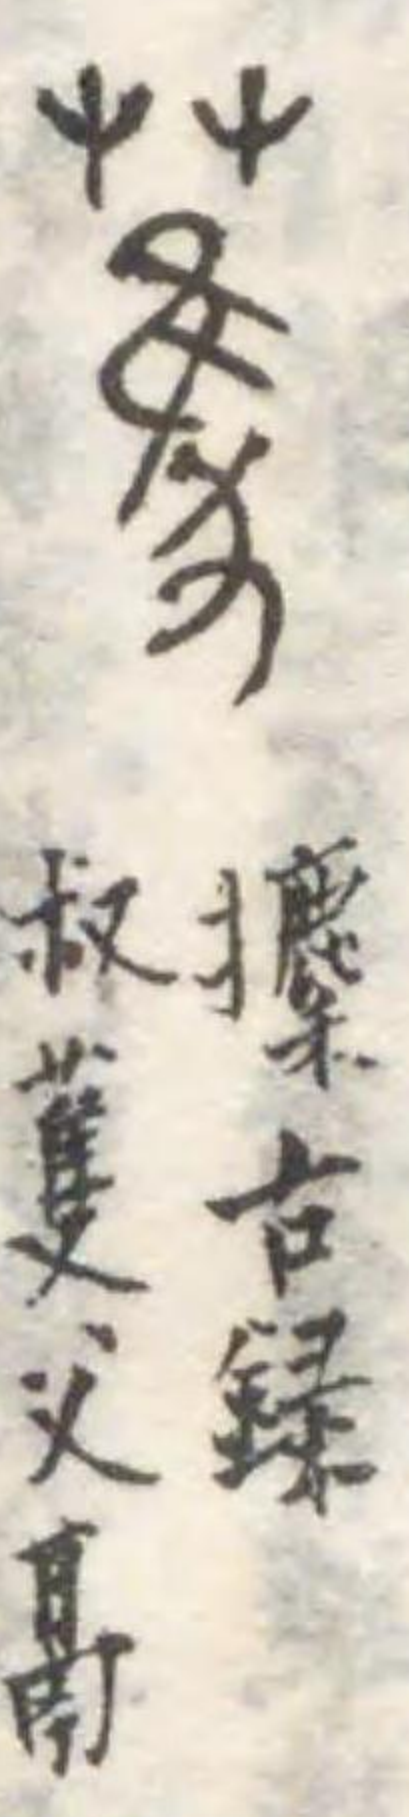 攈古録
叔蒦父鬲